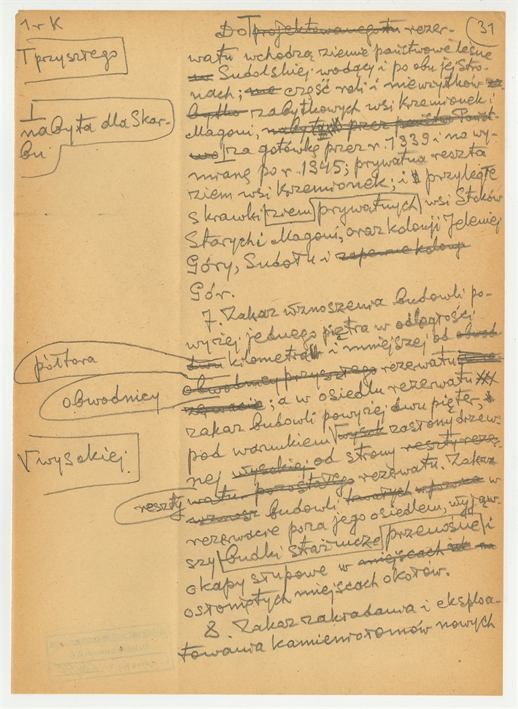 1 r K
31
T przyszłego
I
nabyta dla Skar-
bu
Do T projektowanego tu rezer-
watu wchodzą ziemie państwowe leśne
Sudolskiej wodący i po obu jej stro-
nach; część roli i nieużytków
zabytkowych wsi Krzemionek i
Magoni, nabyta przez
I za gotówkę przez r. 1939 i na wy-
mianę po r. 1945; prywatna reszta
ziem wsi Krzemionek; i przyległe
skrawki ziem prywatnych wsi Stoków
Starych i Magoni, oraz kolonji Jeleniej
Góry, Sudołu i zapewne kolonji
Gór.
7. Zakaz wznoszenia budowli po-
wyżej jednego piętra w odległości
półtora
dwu kilometra i mniejszej od
obwodnicy przyszłego rezerwatu
obwodnicy
; a w osiedlu rezerwatu
zakaz budowli powyżej dwu pięter,
pod warunkiem V wysok zasłony drzew-
V wysokiej
nej wysokiej od strony reszty reze-
watu pozostałego rezerwatu. Zakaz
reszty
wznosz budowli w
rezerwacie poza jego osiedlem, wyjąw-
szy budki strażnicze przenośne i
okapy słupowe w miejscach
osłoniętych miejscach okołów.
8. Zakaz zakładania i eksploa-
towania kamieniołomów nowych